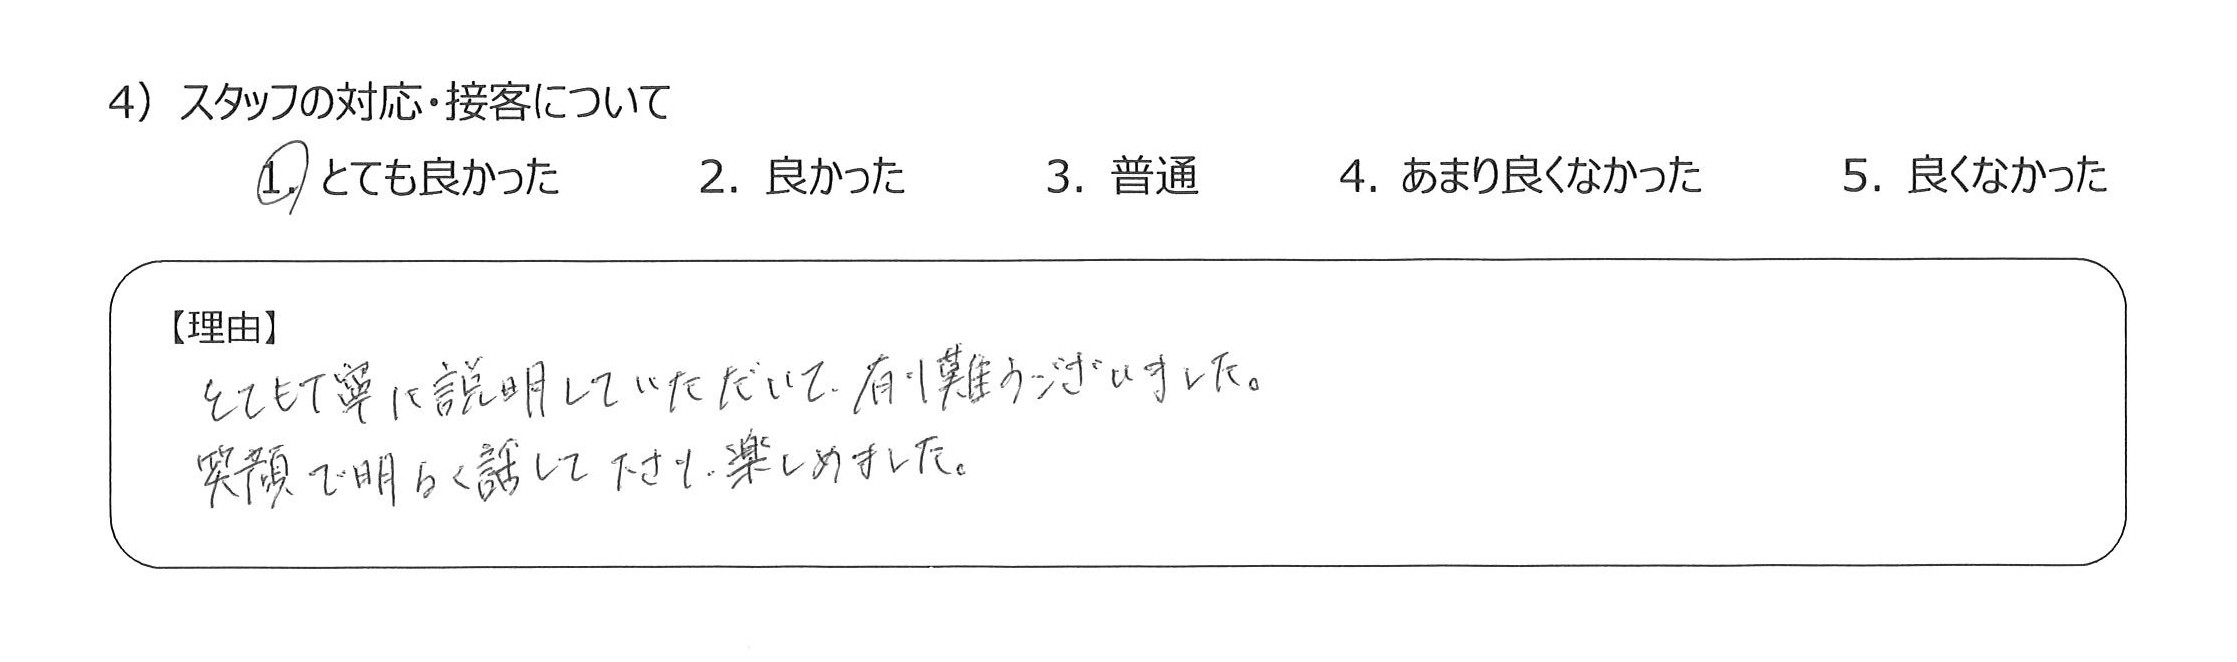 4) スタッフの対応・接客について
1. とても良かった 2. 良かった 3. 普通 4. あまり良くなかった 5. 良くなかった
【理由】
とても丁寧に説明していただいて、有り難うございました。
笑顔で明るく話して下さり、楽しめました。